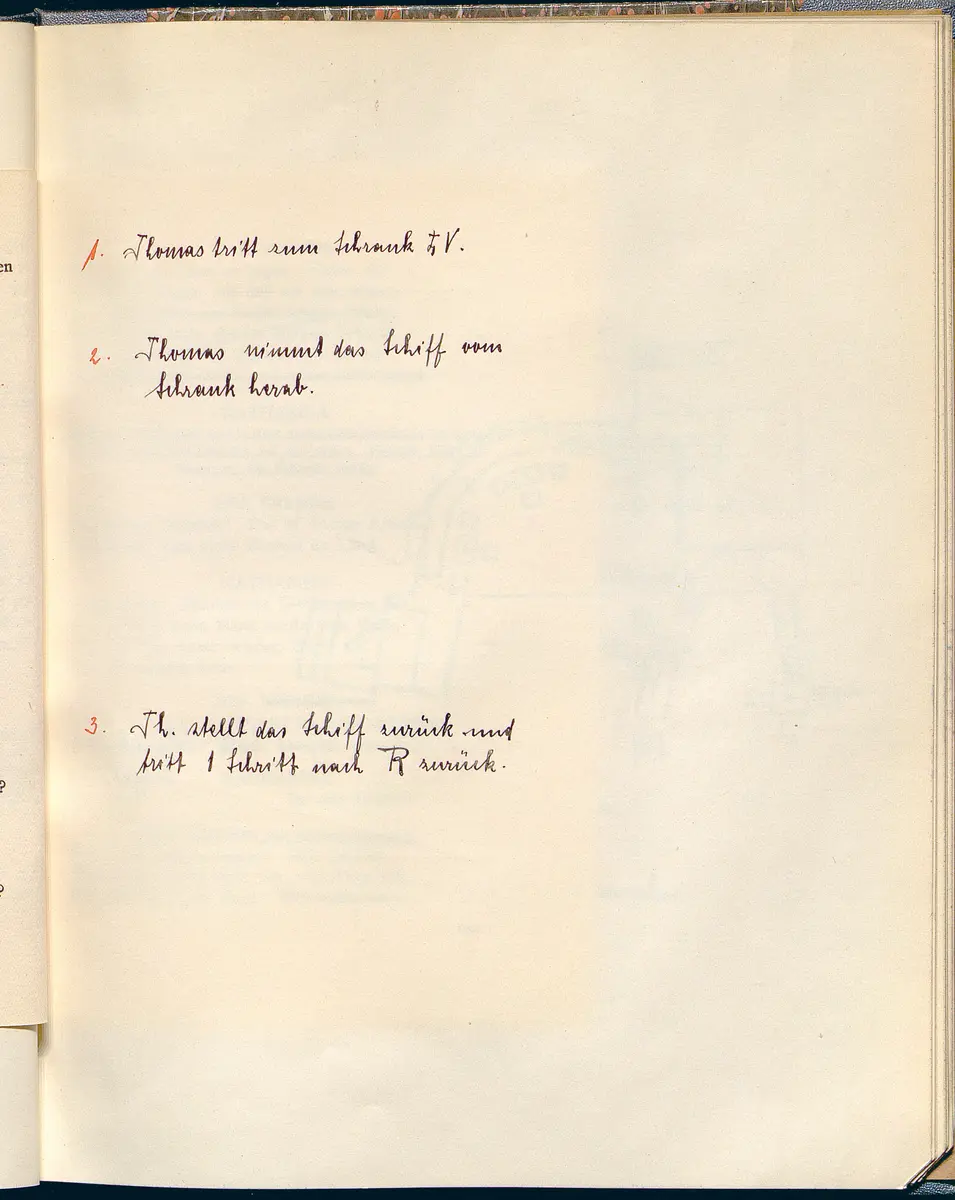 en
1. Thomas tritt zum Schrank L V.
2. Thomas nimmt das Schiff vom
Schrank herab.
3. Th. stellt das Schiff zurück und
tritt 1 Schritt nach R zurück.
?
?